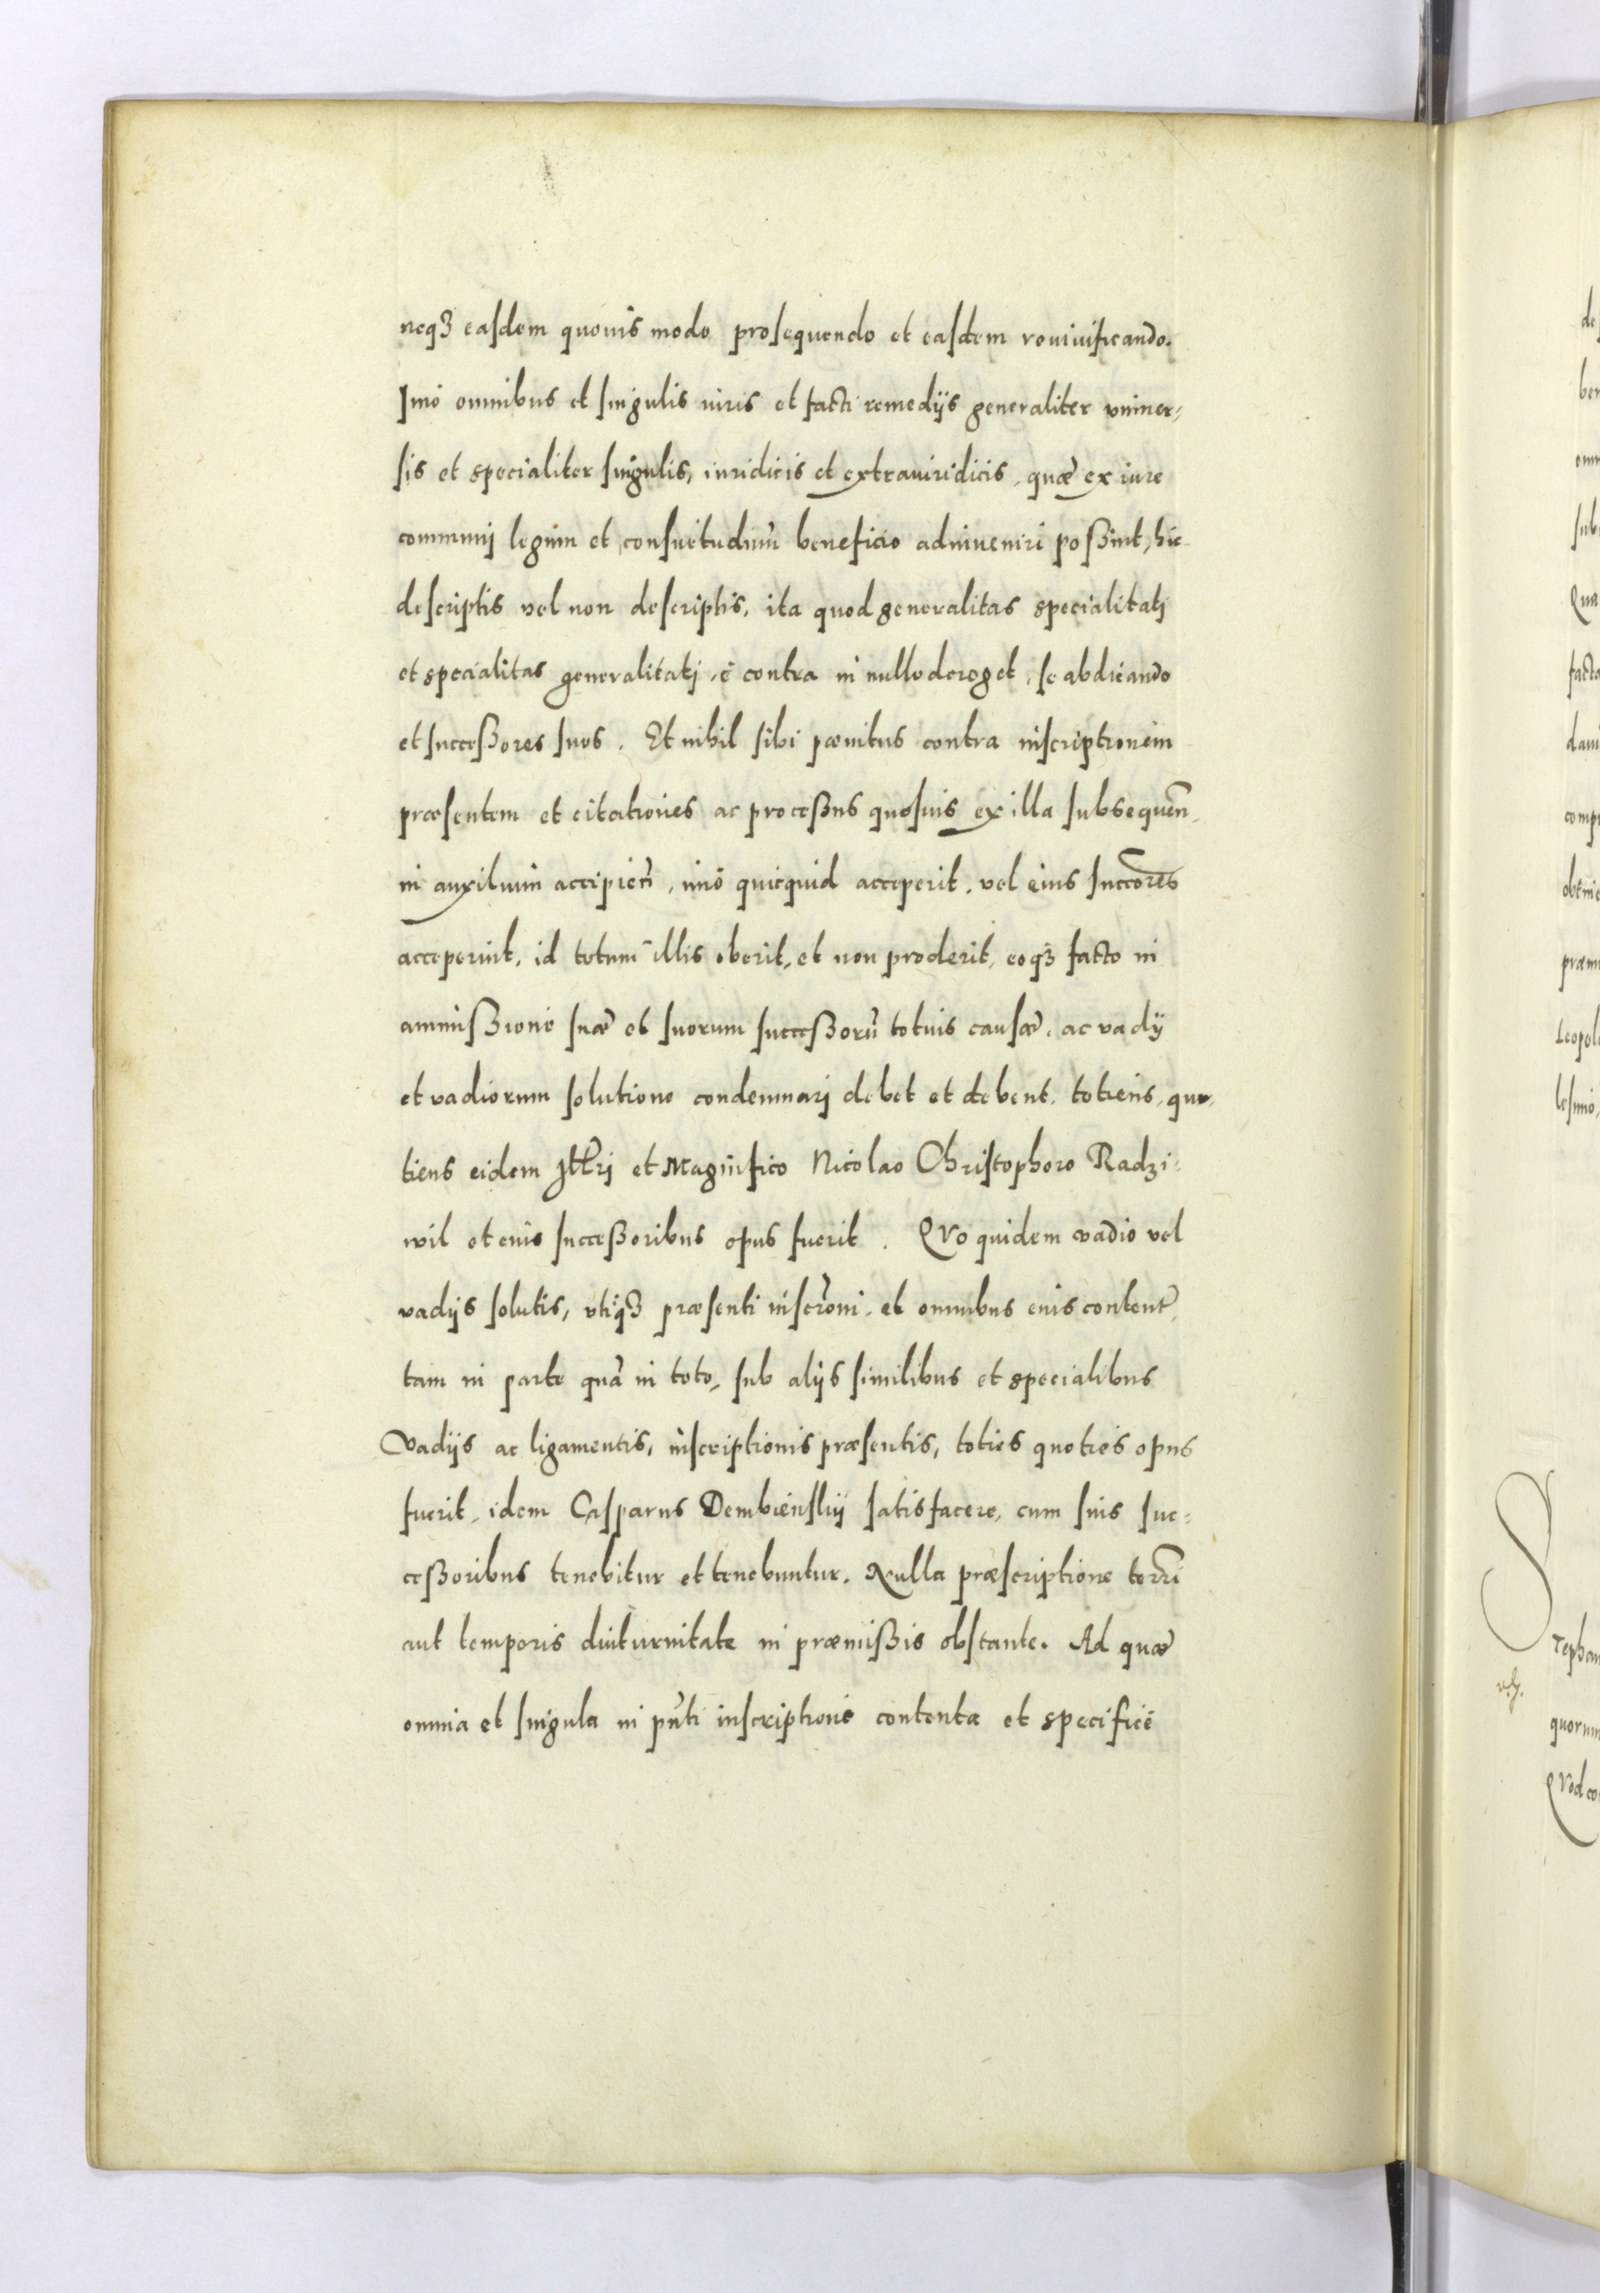 neqꝫ easdem quouis modo prosequendo et easdem reuiuificando.
Imò omnibus et singulis iuris et facti remedijs generaliter vniuer-
sis et specialiter singulis, iuridicis et extraiuridicis, quæ ex iure
communj legum et consuetudinū beneficio adinueniri poßint, hic
descriptis vel non descriptis, ita quod generalitas specialitatj
et specialitas generalitatj, è contra in nullo deroget, se abdicando
et succeßores suos. Et nihil sibi pænitus contra inscriptionem
præsentem et citationes ac proceßus quosuis ex illa subsequeñ,
in auxilium accipień, imò quicquid acceperit, vel eius succōres
acceperint, id totum illis oberit, et non proderit, eoqꝫ facto in
ammißione suæ et suorum succeßorū totius causæ, ac vadij
et vadiorum solutione condemnarj debet et debent, totiens, quo-
tiens eidem Illrj et Magnifico Nicolao Christophoro Radzi-
wil et eius succeßoribus opus fuerit. Quo quidem vadio vel
vadijs solutis, vtiqꝫ præsenti inscrōni, et omnibus eius content̄,
tam in parte quā in toto, sub alijs similibus et specialibus
vadijs ac ligamentis, inscriptionis præsentis, toties quoties opus
fuerit, idem Casparus Dembienslij satisfacere, cum suis suc-
ceßoribus tenebitur et tenebuntur. Nulla præscriptione terrī
aut temporis diuturnitate in præmißis obstante. Ad quæ
omnia et singula in pñti inscriptione contenta et specificè